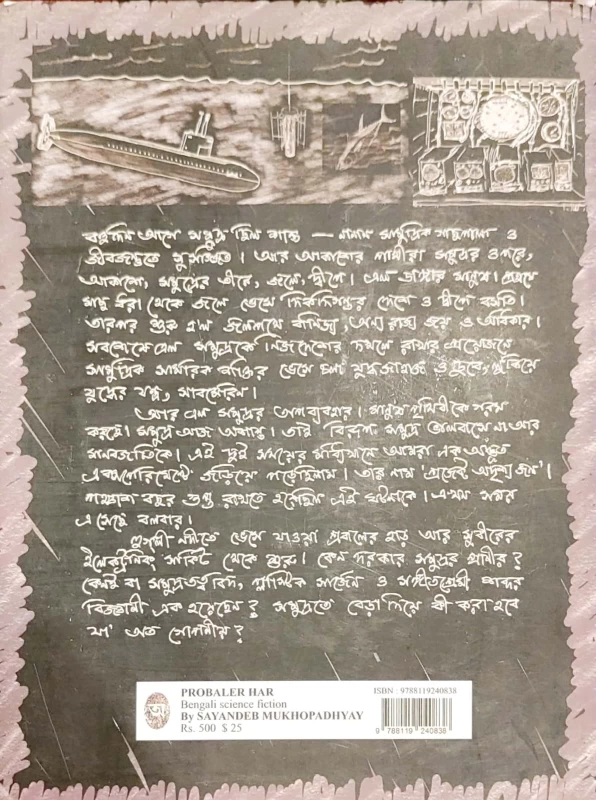 বহুদিন আগে সমুদ্র ছিল শান্ত — নানান সামুদ্রিক গাছপালা ও
জীবজন্তুতে সুসজ্জিত। আর আকাশের পাখীরা সমুদ্রের ওপরে,
আকাশে, সমুদ্রের তীরে, জলে, দ্বীপে। এল ডাঙ্গার মানুষ। প্রথমে
মাছ ধরা থেকে জলে ভেসে দিকদিগন্তের দেশে ও দ্বীপে বসতি।
তারপর শুরু হল জলপথে বানিজ্য, অন্য রাজ্য জয় ও অধিকার।
সবশেষে এল সমুদ্রকে নিজদেশের দখলে রাখার প্রয়োজনে
সামুদ্রিক সামরিক শক্তির ভেসে চলা যুদ্ধজাহাজ ও ডুবে, লুকিয়ে
যুদ্ধের যন্ত্র, সাবমেরিন।
আর এল সমুদ্রের অপব্যবহার। মানুষ পৃথিবীকে গরম
করছে। সমুদ্র আজ অশান্ত। তার বিরূপ সমুদ্র ভালবাসে না আর
মানবজাতিকে। এই দুই সময়ের মধ্যিখানে আমরা এক অদ্ভুত
এক্সপেরিমেন্টে জড়িয়ে পড়েছিলাম। তার নাম 'প্রজেক্ট অদৃশ্য জল'।
পঞ্চাশ বছর গুপ্ত রাখতে হয়েছিল এই ঘটনাকে। এখন সময়
এসেছে বলবার।
হুগলী নদীতে ভেসে যাওয়া প্রবালের হার আর সুবীরের
ইলেকট্রনিক্স সার্কিট থেকে শুরু। কেন দরকার সমুদ্রর প্রাণীর?
কেনই বা সমুদ্রতত্ত্ববিদ, প্লাস্টিক সার্জেন ও সঙ্গীতপ্রেমী শব্দর
বিজ্ঞানী এক হয়েছেন? সমুদ্রতে বেড়া দিয়ে কী করা হবে
যা' অত গোপনীয়?
PROBALER HAR
Bengali science fiction
By SAYANDEB MUKHOPADHYAY
Rs. 500 $ 25
ISBN : 9788119240838
9 788119 240838